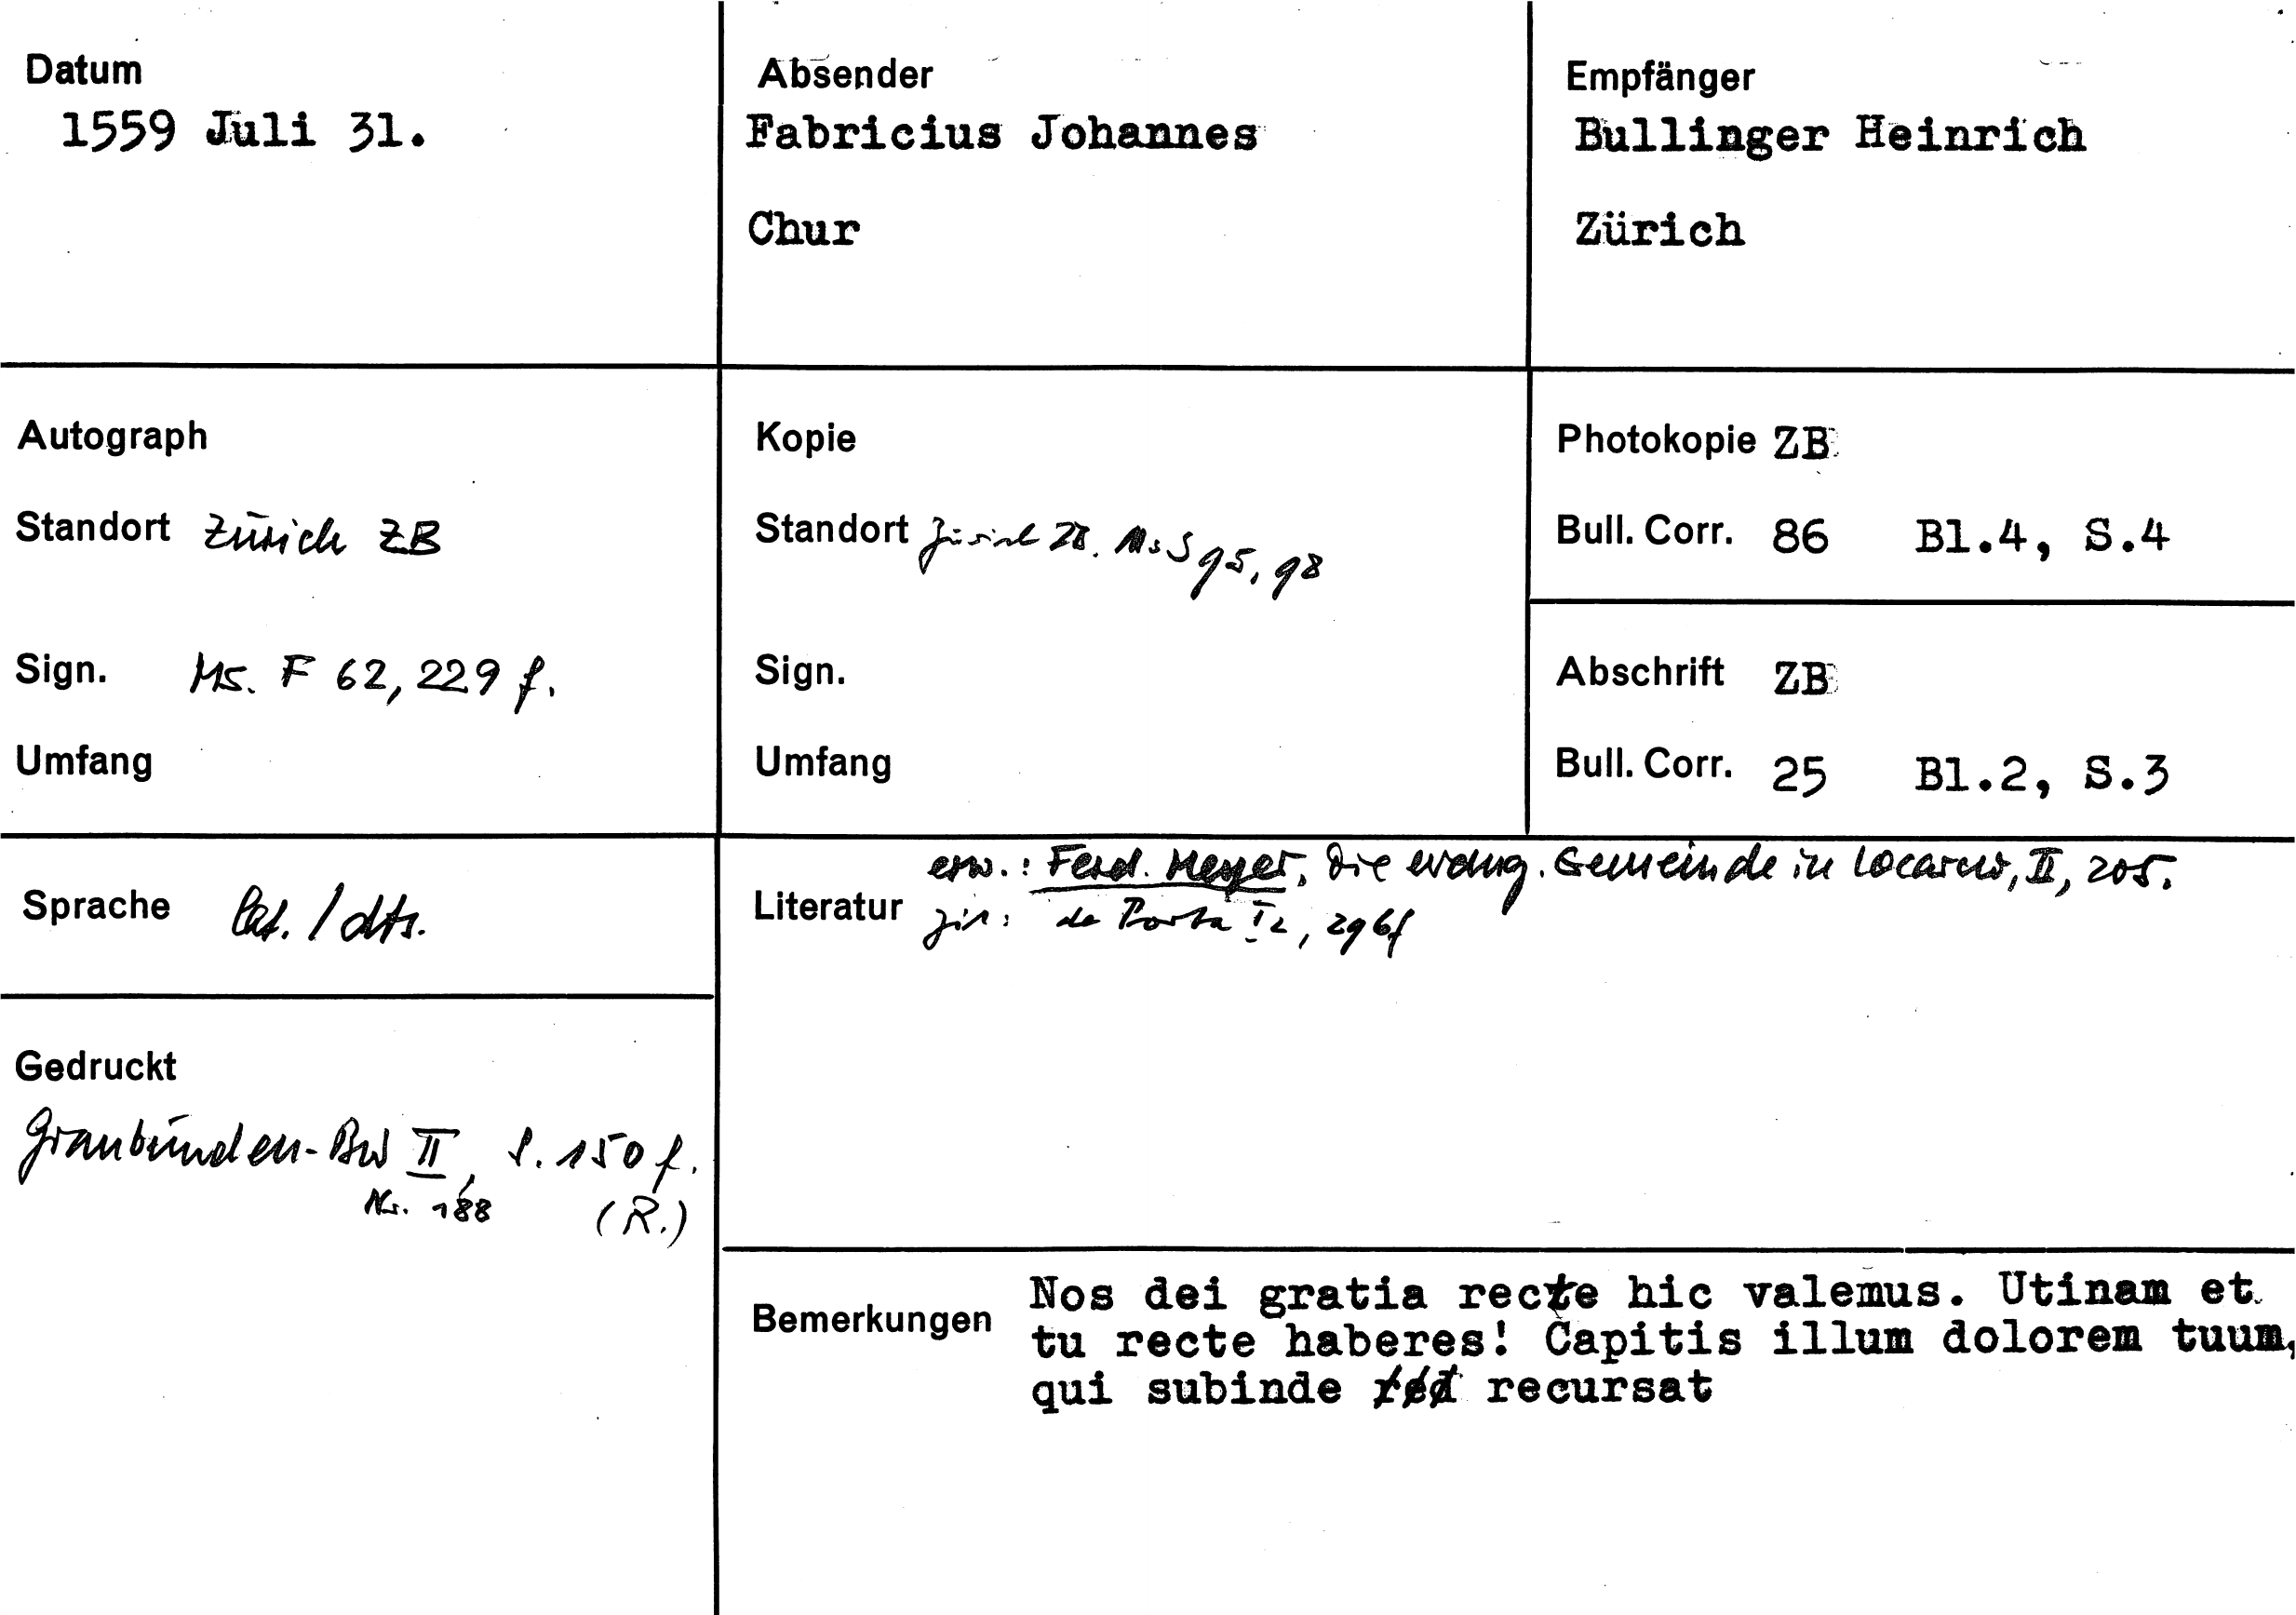 Datum
1559 Juli 31.
Absender
Fabricius Johannes
Chur
Empfänger
Bullinger Heinrich
Zürich
Autograph
Standort Zürich ZB
Sign. Ms. F 62, 229 f.
Umfang
Kopie
Standort Zürich ZB. Ms S 95, 98
Sign.
Umfang
Photokopie ZB
Bull. Corr. 86 Bl.4, S.4
Abschrift ZB
Bull. Corr. 25 Bl.2, S.3
Sprache lat. / dts.
erw.: Ferd. Meyer, Die evang. Gemeinde in Locarno, II, 205.
Literatur zit: de Porta I2, 296f
Gedruckt
Graubünden-BW II, S. 150 f.
Nr. 188 (R.)
Bemerkungen
Nos dei gratia recte hic valemus. Utinam et
tu recte haberes! Capitis illum dolorem tuum,
qui subinde recursat